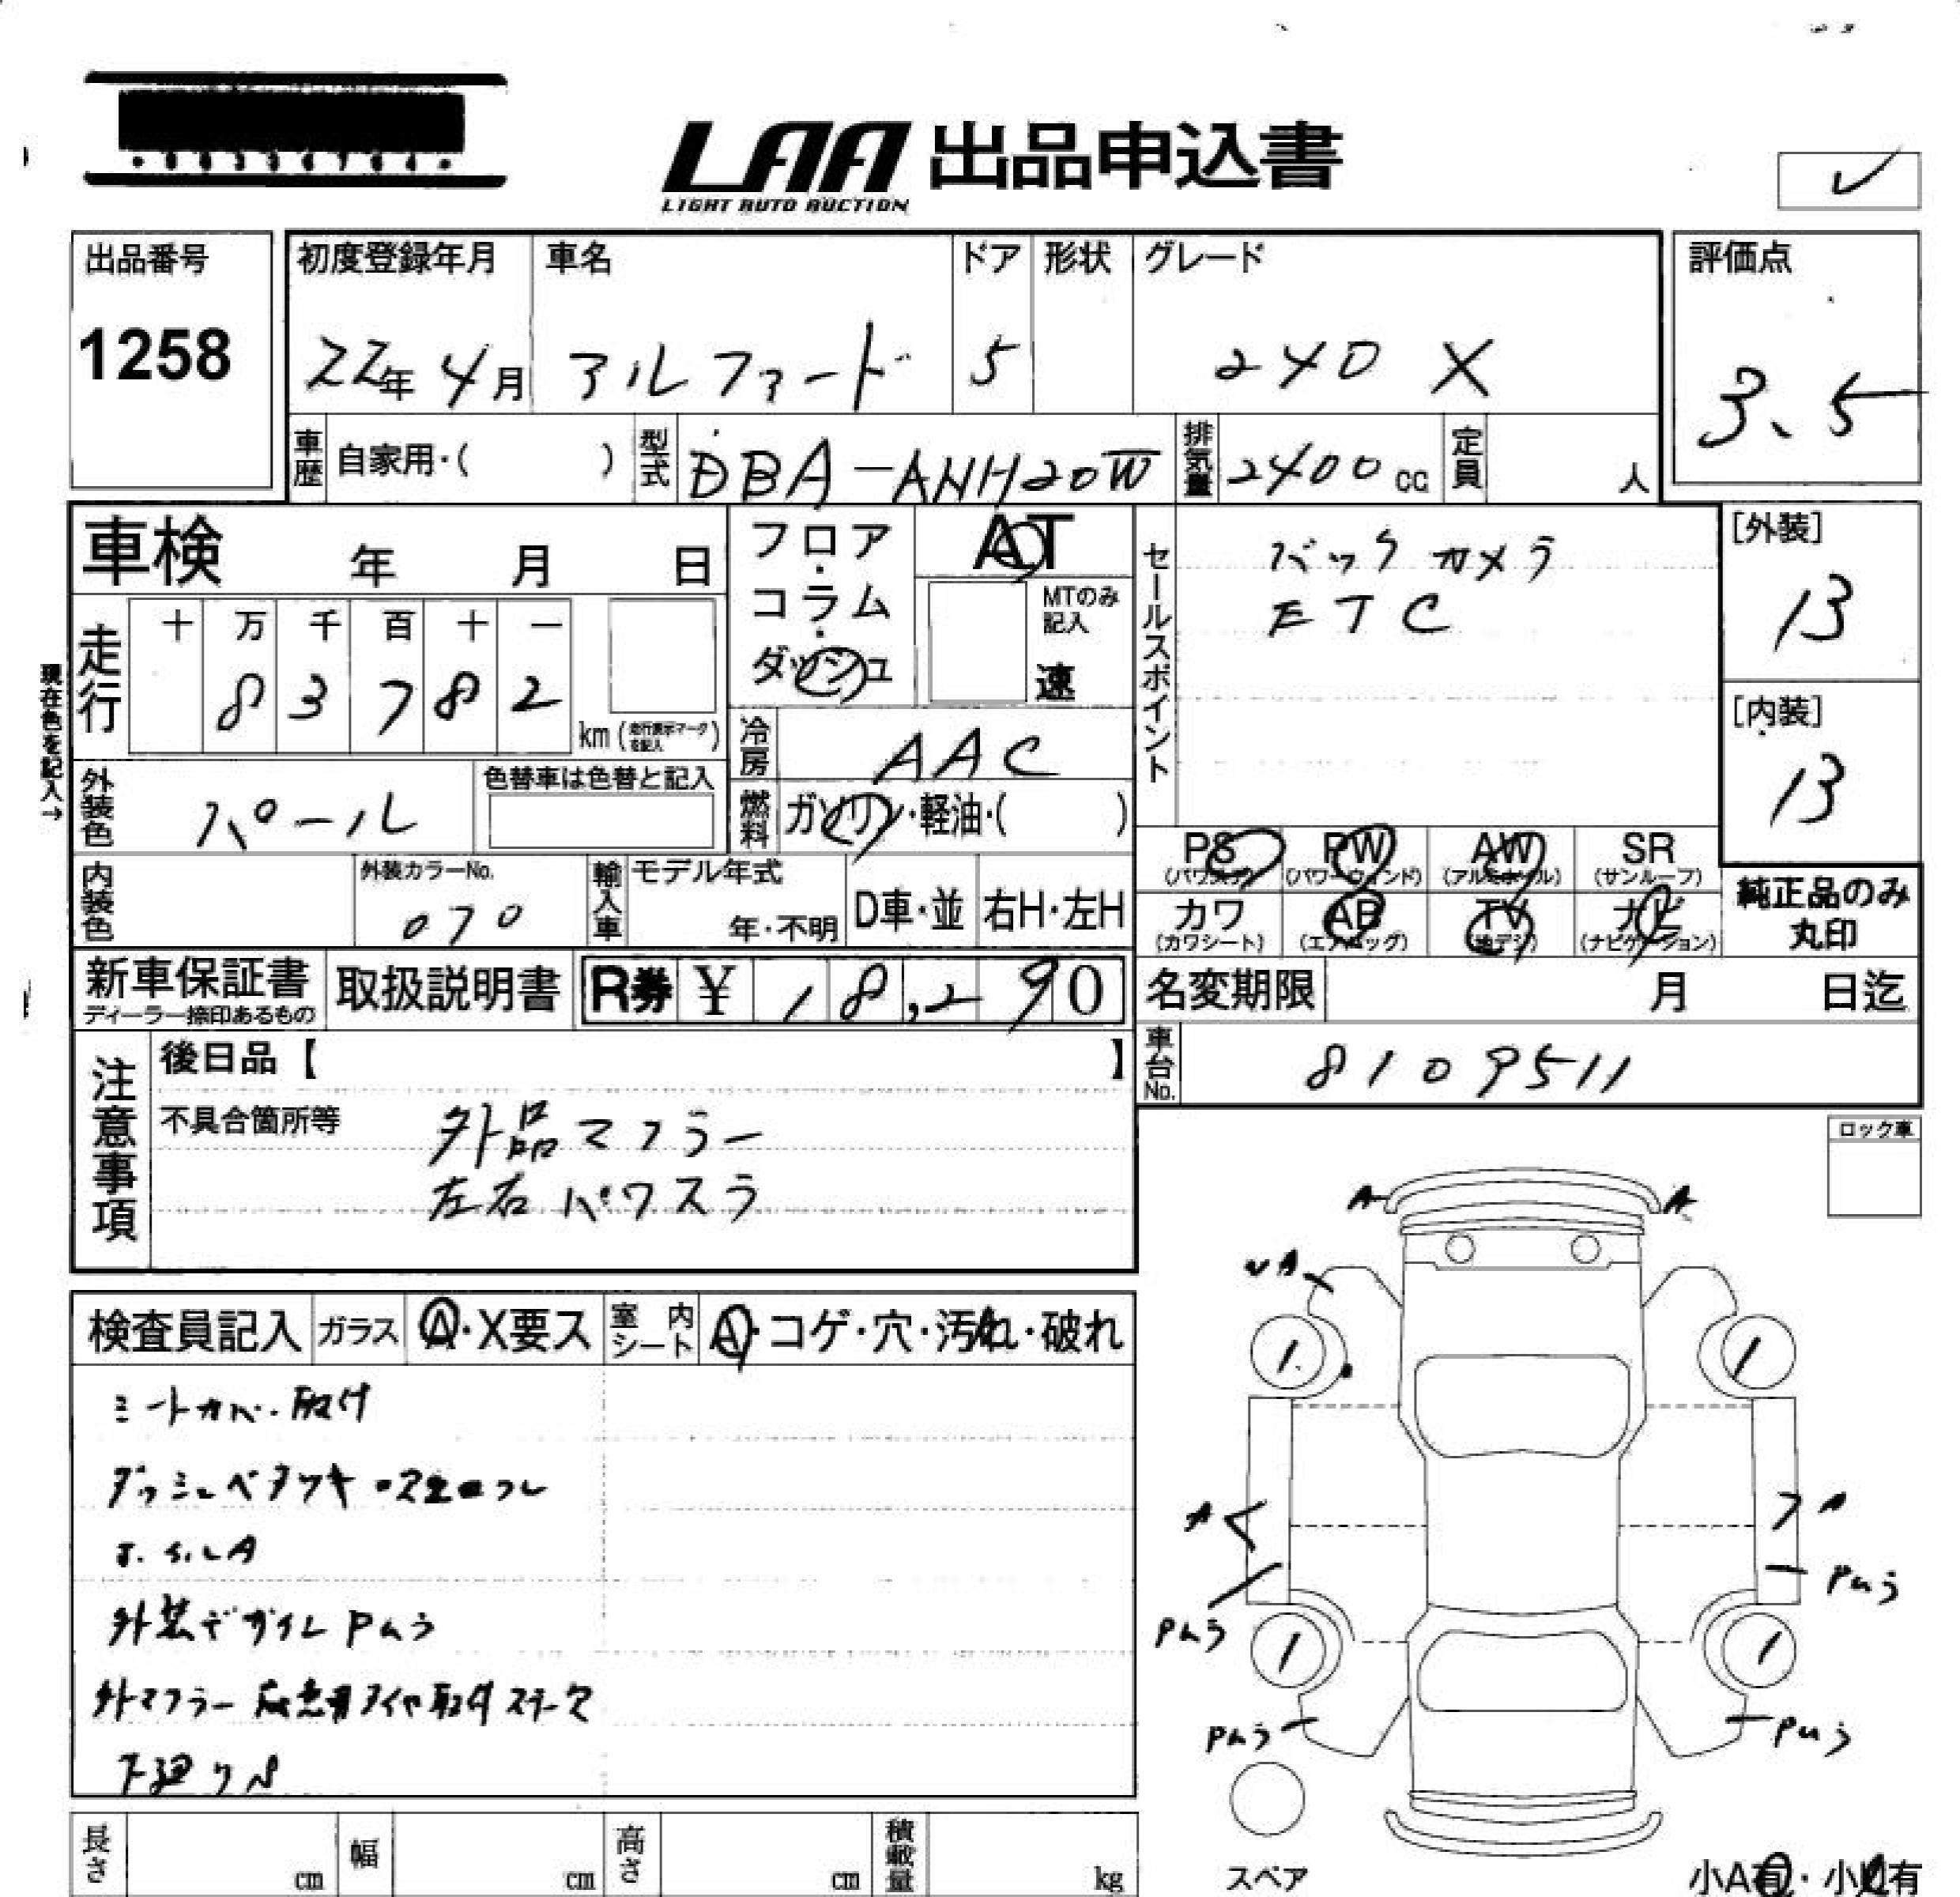 LAA 出品申込書
LIGHT AUTO AUCTION
出品番号
1258
初度登録年月
22年 4月
車名
アルファード
ドア
5
形状
グレード
240 X
評価点
3.5
車歴 自家用・( )
型式 DBA-ANH20W
排気量 2400 cc
定員 人
車検 年 月 日
フロア・コラム・ダッシュ
AT
MTのみ記入
速
セールスポイント
バックカメラ
ETC
[外装]
13
[内装]
13
現在色を記入→
走行 十 万 千 百 十 一
8 3 7 8 2
km (走行表示マークを記入)
冷房 AAC
外装色 パール
色替車は色替と記入
燃料 ガソリン・軽油・( )
内装色
外装カラーNo.
070
輸入車
モデル年式
年・不明
D車・並
右H・左H
PS (パワステ)
PW (パワーウィンド)
AW (アルミホイル)
SR (サンルーフ)
カワ (カワシート)
AB (エアバッグ)
TV (地デジ)
ナビ (ナビゲーション)
純正品のみ
丸印
新車保証書
ディーラー捺印あるもの
取扱説明書
R券 ¥ 18,290
名変期限 月 日迄
車台No. 8109511
注意事項
後日品【 】
不具合箇所等
外品マフラー
左右パワスラ
ロック車
検査員記入 ガラス A・X要ス 室内シート A・コゲ・穴・汚れ・破れ
シートカバー取付
ダッシュベタツキ
ホイルA
外装デカイレPムラ
外マフラー 応急用タイヤ取付ステー欠
下廻りS
A
A
A
A
A
Pムラ
Pムラ
Pムラ
Pムラ
スペア
小A有・小U有
長さ cm
幅 cm
高さ cm
積載量 kg